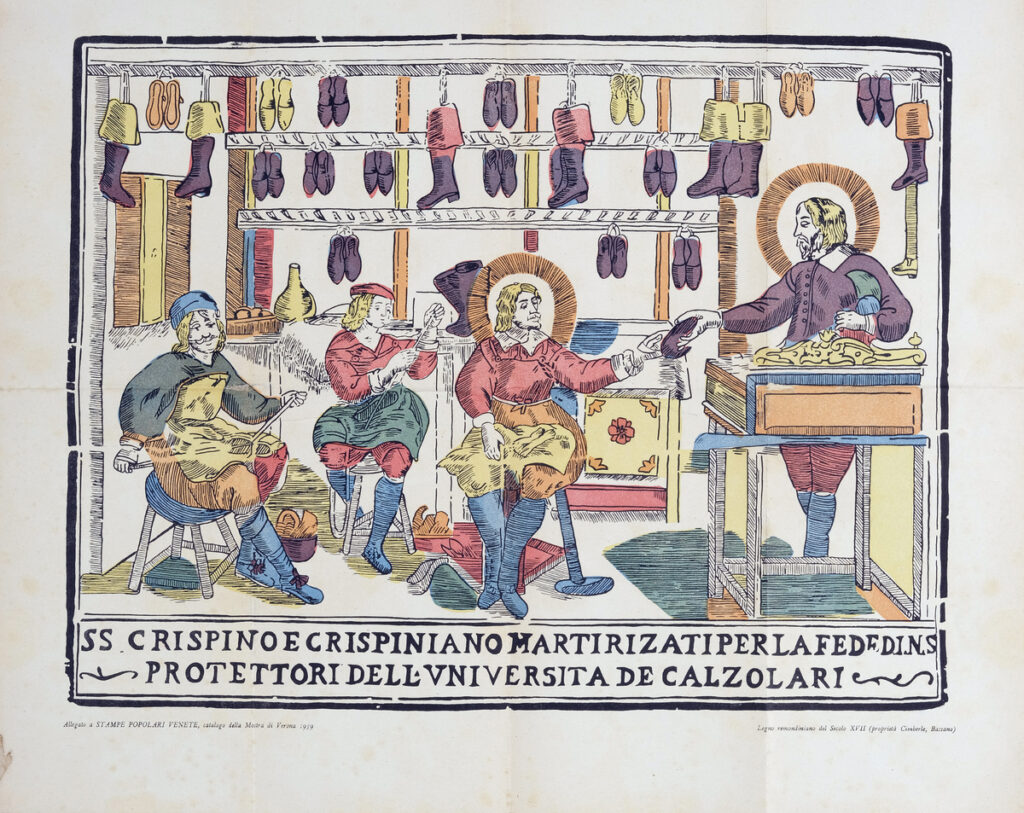 SS CRISPINO E CRISPINIANO MARTIRIZATI PER LA FEDE D.I.N.S
PROTETTORI DELL·VNIVERSITA DE CALZOLARI
Allegato a STAMPE POPOLARI VENETE, catalogo della Mostra di Verona 1959
Legno remondiniano del Secolo XVII (proprietà Cimberle, Bassano)